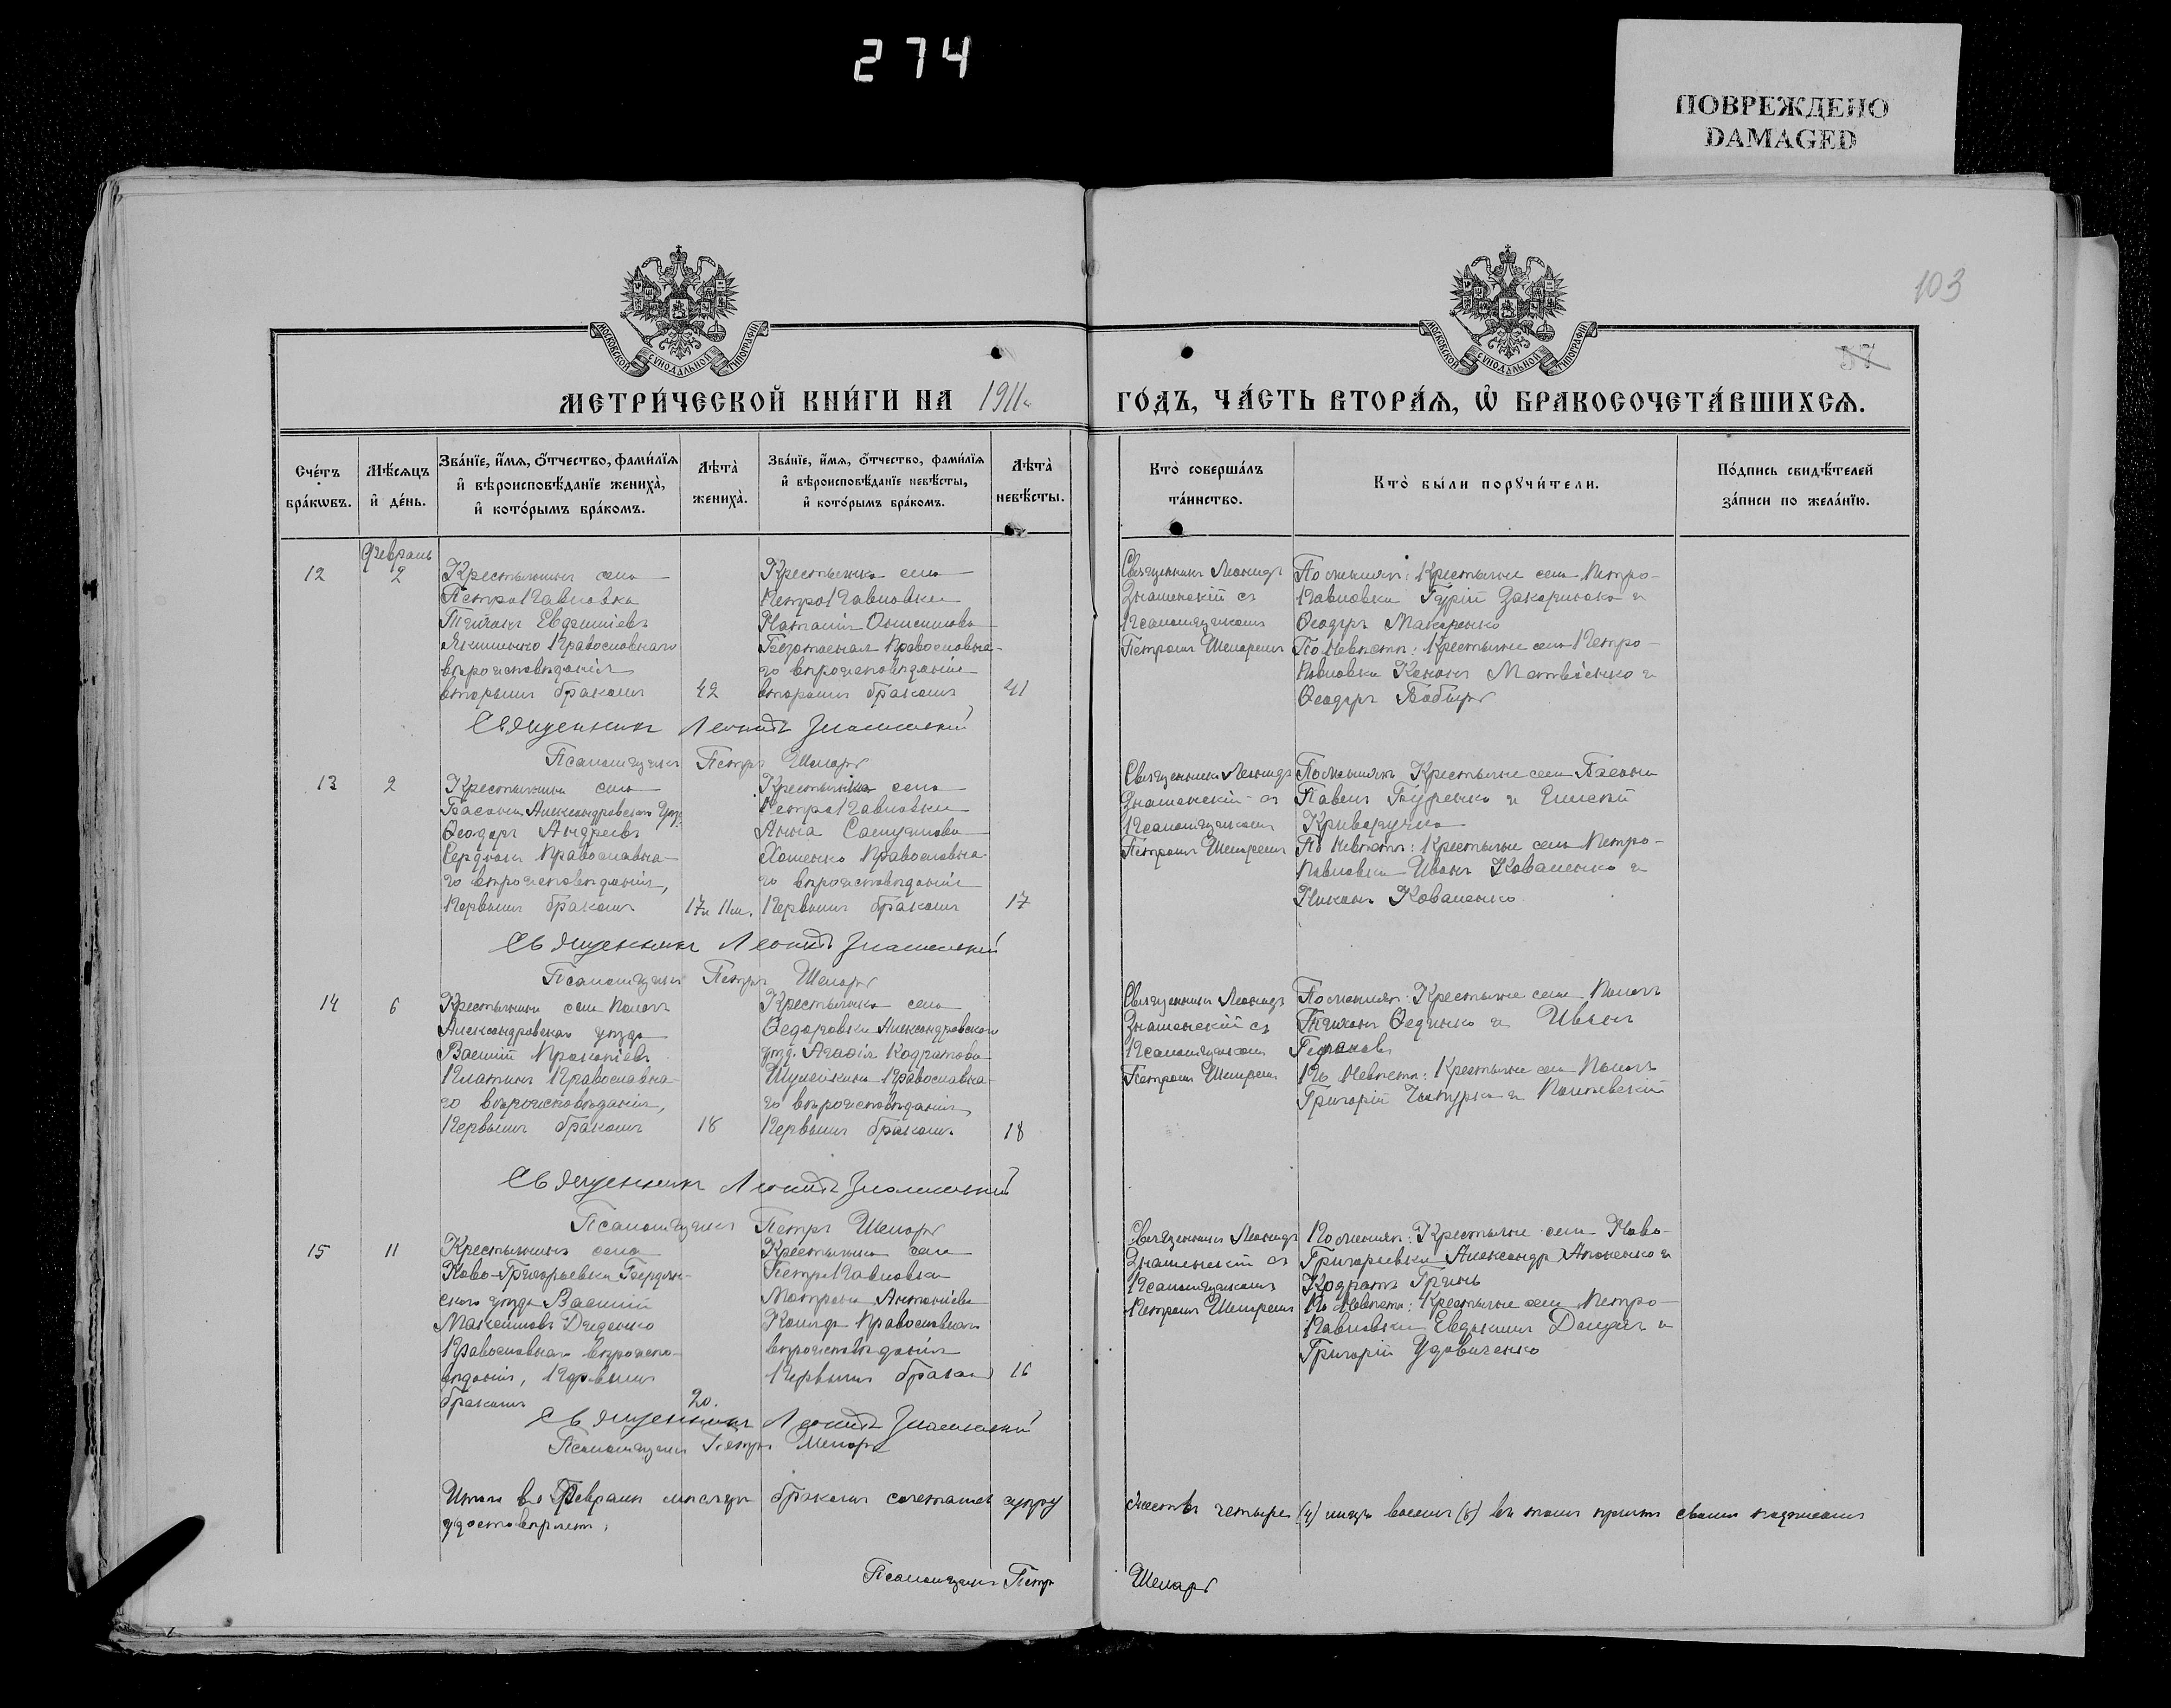 274
ПОВРЕЖДЕНО
DAMAGED
103
57
МОСКОВСКОЙ СѴНОДАЛЬНОЙ ТИПОГРАФІИ
МОСКОВСКОЙ СѴНОДАЛЬНОЙ ТИПОГРАФІИ
МЕТРИ́ЧЕСКОЙ КНИ́ГИ НА 1911 ГО́ДЪ, ЧА́СТЬ ВТОРА́Ѧ, Ѡ҆ БРАКОСОЧЕТА́ВШИХСѦ.
Сче́тъ бра́кѡвъ.
Мѣ́сѧцъ и҆ де́нь.
Зва́нїе, и҆́мѧ, ѻ҆́тчество, фами́лїѧ и҆ вѣроисповѣ́данїе жениха̀, и҆ кото́рымъ бра́комъ.
Лѣта̀ жениха̀.
Зва́нїе, и҆́мѧ, ѻ҆́тчество, фами́лїѧ и҆ вѣроисповѣ́данїе невѣ́сты, и҆ кото́рымъ бра́комъ.
Лѣта̀ невѣ́сты.
Кто̀ соверша́лъ та́инство.
Кто̀ бы́ли порꙋчи́тели.
По́дпись свидѣ́телей за́писи по жела́нїю.
Февраль
12
2
Крестьянинъ села
Петропавловка
Тихонъ Евфиміевъ
Якименко Православнаго
вѣроисповѣданія
вторымъ бракомъ
42
Крестьянка села
Петропавловки
Наталія
Православна-
го вѣроисповѣданія
вторымъ бракомъ
41
Священникъ Леонидъ
Знаменскій съ
Псаломщикомъ
Петромъ Шепаремъ
По женихѣ: Крестьяне села Петро-
павловки Гурій Захаренко и
Ѳеодоръ Макаренко
По невѣстѣ: Крестьяне села Петро-
павловки Кононъ Матвіенко и
Ѳеодоръ Бобырь
Священникъ Леонидъ Знаменскій
Псаломщикъ Петръ Шепарь
13
2
Крестьянинъ села
Басани Александровскаго уѣзд.
Ѳеодоръ Андреевъ
Сердюкъ Православна-
го вѣроисповѣданія,
первымъ бракомъ
17 л. 11 м.
Крестьянка села
Петропавловки
Анна Самуилова
Хоменко Православна-
го вѣроисповѣданія
первымъ бракомъ
17
Священникъ Леонидъ
Знаменскій съ
Псаломщикомъ
Петромъ Шепаремъ
По женихѣ Крестьяне села Басани
Павелъ Буренко и Елисей
Криворучко
По невѣстѣ: Крестьяне села Петро-
павловки Иванъ Коваленко и
Никонъ Коваленко
Священникъ Леонидъ Знаменскій
Псаломщикъ Петръ Шепарь
14
6
Крестьянинъ села Пологъ
Александровскаго уѣзда
Василій Прокопіевъ
Платинъ Православна-
го вѣроисповѣданія,
первымъ бракомъ
18
Крестьянка села
Ѳедоровки Александровскаго
уѣзд. Агафія Кодратова
Шулейкина Православна-
го вѣроисповѣданія
первымъ бракомъ.
18
Священникъ Леонидъ
Знаменскій съ
Псаломщикомъ
Петромъ Шепаремъ
По женихѣ: Крестьяне села Пологъ
Тихонъ Ѳеденко и Иванъ
По невѣстѣ: Крестьяне села Пологъ
Григорій и
Священникъ Леонидъ Знаменскій
Псаломщикъ Петръ Шепарь
15
11
Крестьянинъ села
Ново-Григорьевки Бердян-
скаго уѣзда Василій
Максимовъ Диденко
Православнаго вѣроиспо-
вѣданія, первымъ
бракомъ
20.
Крестьянка села
Петропавловки
Матрона Антоніева
Православнаго
вѣроисповѣданія
первымъ бракомъ
16
Священникъ Леонидъ
Знаменскій съ
Псаломщикомъ
Петромъ Шепаремъ
По женихѣ: Крестьяне села Ново-
Григорьевки Александръ Апоненко и
Кодратъ Гринь
По невѣстѣ: Крестьяне села Петро-
павловки Евдокимъ и
Григорій Удовиченко
Священникъ Леонидъ Знаменскій
Псаломщикъ Петръ Шепарь
Итого въ Февралѣ мѣсяцѣ бракомъ сочеталось супружествъ четыре (4) лицъ восемь (8) въ томъ причтъ своимъ подписомъ
удостовѣряетъ.
Псаломщикъ Петръ Шепарь